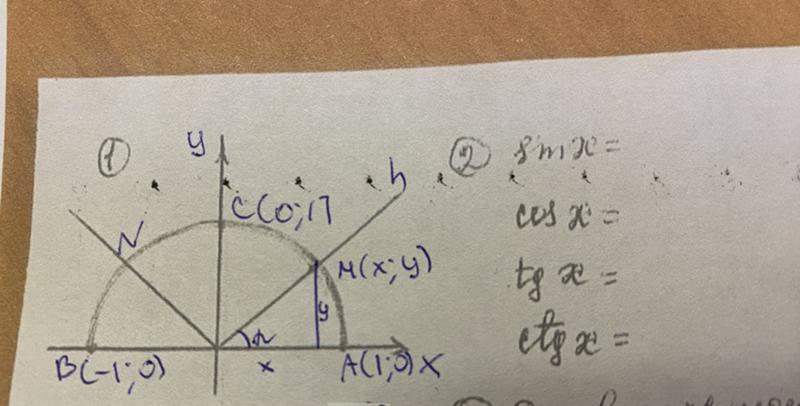 ①
y
h
C(0;1)
N
M(x;y)
y
α
x
B(-1;0)
A(1;0)
X
② sin x =
cos x =
tg x =
ctg x =